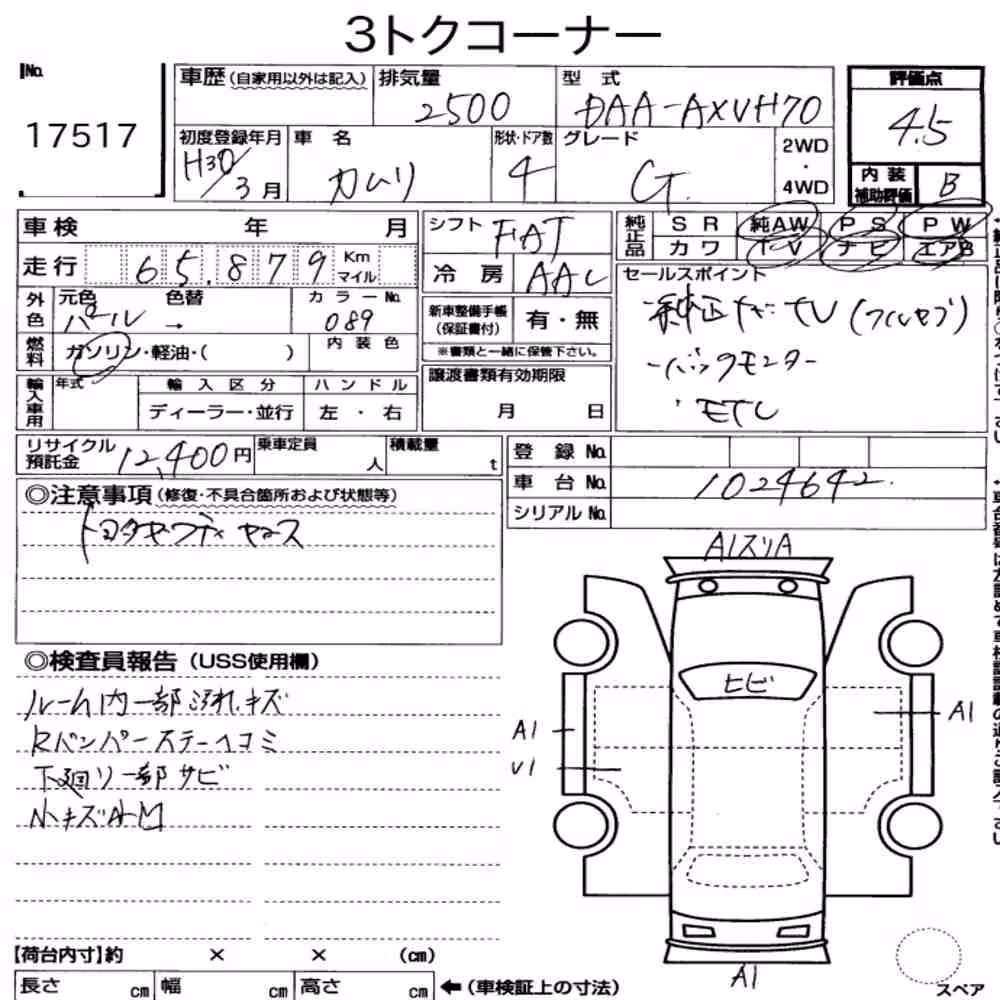 3トクコーナー
No.
17517
車歴 (自家用以外は記入) 排気量 型式 評価点
2500 DAA-AXVH70 4.5
初度登録年月 車名 形状・ドア数 グレード 2WD・4WD
H30/3月 カムリ 4 G. 内装補助評価 B
車検 年 月 シフト FAT 純正品 SR 純AW PS PW
カワ TV ナビ エアB
走行 65,879 Km マイル 冷房 AAC
セールスポイント
外色 元色 色替 カラーNo. 新車整備手帳(保証書付) 有・無
パール → 089
・純正ナビTV (フルセグ)
・バックモニター
・ETC
燃料 ガソリン・軽油・( ) 内装色 ※書類と一緒に保管下さい。
輸入車用 年式 輸入区分 ハンドル 譲渡書類有効期限
ディーラー・並行 左・右 月 日
リサイクル預託金 12,400円 乗車定員 人 積載量 t
登録No.
車台No. 1024642
シリアルNo.
◎注意事項 (修復・不具合箇所および状態等)
◎検査員報告 (USS使用欄)
ルーム内一部汚れ、キズ
Rバンパーステーヘコミ
下廻り一部サビ
小キズA-M
A1スリA
ヒビ
A1
A1
U1
A1
【荷台内寸】約 × × (cm)
長さ cm 幅 cm 高さ cm ←(車検証上の寸法)
スペア